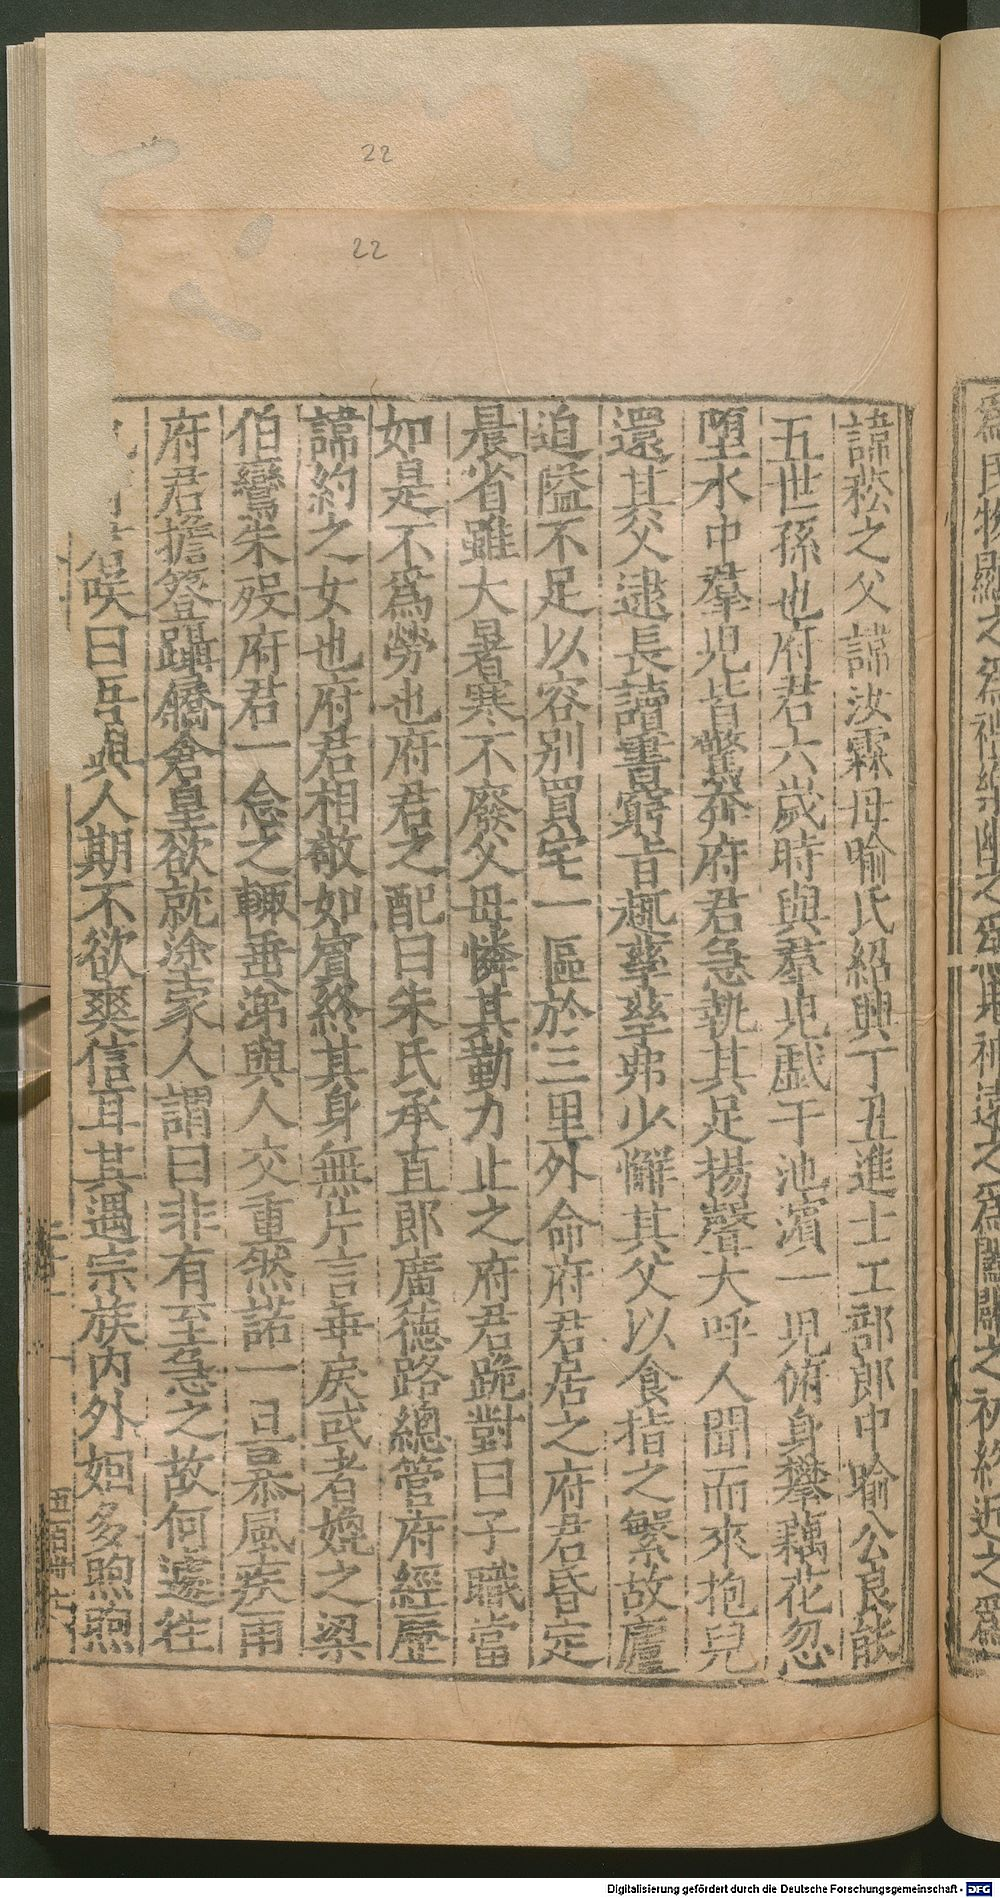 22
22
諱崧之父諱汝霖母喻氏紹興丁丑進士工部郎中喻公良能
五世孫也府君六歲時與羣児戯于池濱一児俯身攀藕花忽
墮水中羣児皆驚奔府君急執其足揚聲大呼人聞而來抱兒
還其父逮長讀書窮旨趣孳孳弗少懈其父以食指之繁故廬
迫隘不足以容别買宅一區於三里外命府君居之府君昏定
晨省雖大暑寒不廢父母憐其勤力止之府君跪對曰子職當
如是不爲勞也府君之配曰朱氏承直郎廣徳路總管府經歷
諱約之女也府君相敬如賓終其身無片言乖戾或者媲之梁
伯鸞朱殁府君一念之輒垂涕與人交重然諾一旦暴風疾雨
府君擔簦躡屩倉皇欲就塗家人謂曰非有至急之故何遽徃
君唉曰吾與人期不欲爽信耳其遇宗族内外姻多煦煦
爲民物顯之爲禮樂幽之爲鬼神遠之爲闔闢之初終近之爲
Digitalisierung gefördert durch die Deutsche Forschungsgemeinschaft - DFG